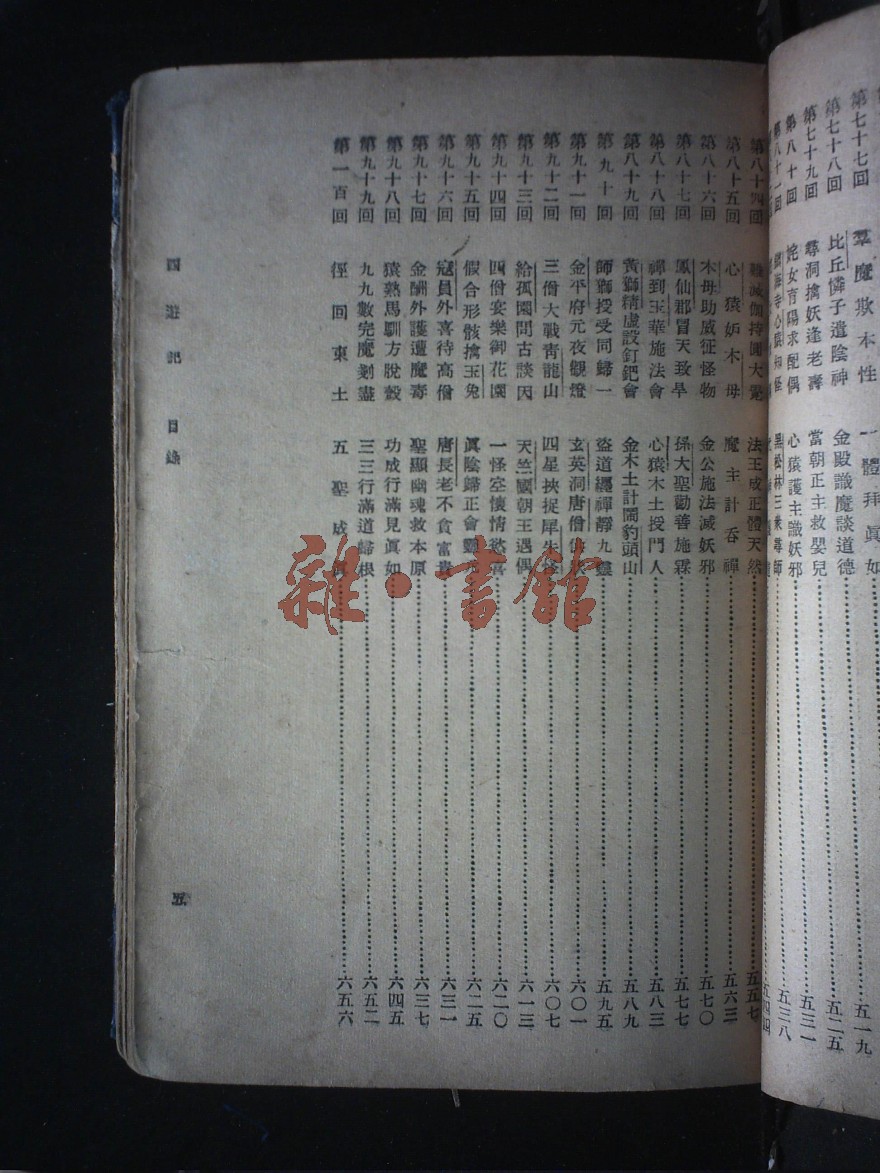 第七十七回 羣魔欺本性 一體拜眞如 五一九
第七十八回 比丘憐子遣陰神 金殿識魔談道德 五二五
第七十九回 尋洞擒妖逢老壽 當朝正主救嬰兒 五三一
第八十回 姹女育陽求配偶 心猿護主識妖邪 五三八
第八十一回 海寺心猿知怪 黑松林三衆尋師 五四四
第八十四回 難滅伽持圓大覺 法王成正體天然 五五七
第八十五回 心猿妒木母 魔主計吞禪 五六三
第八十六回 木母助威征怪物 金公施法滅妖邪 五七〇
第八十七回 鳳仙郡冒天致旱 孫大聖勸善施霖 五七七
第八十八回 禪到玉華施法會 心猿木土授門人 五八三
第八十九回 黃獅精虛設釘鈀會 金木土計鬧豹頭山 五八九
第九十回 師獅授受同歸一 盜道纏禪靜九靈 五九五
第九十一回 金平府元夜觀燈 玄英洞唐僧 六〇一
第九十二回 三僧大戰青龍山 四星挾捉犀牛怪 六〇七
第九十三回 給孤園問古談因 天竺國朝王遇偶 六一三
第九十四回 四僧宴樂御花園 一怪空懷情慾喜 六二〇
第九十五回 假合形骸擒玉兔 眞陰歸正會靈元 六二五
第九十六回 寇員外喜待高僧 唐長老不貪富貴 六三一
第九十七回 金酬外護遭魔毒 聖顯幽魂救本原 六三七
第九十八回 猿熟馬馴方脫殼 功成行滿見眞如 六四五
第九十九回 九九數完魔剗盡 三三行滿道歸根 六五二
第一百回 徑回東土 五聖成眞 六五六
西遊記 目錄 五
雜·書館